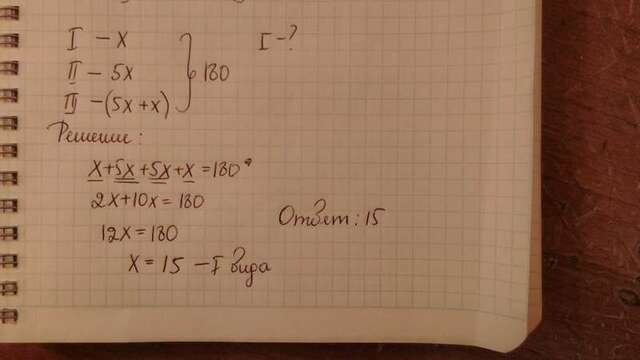 I – x
II – 5x
III – (5x+x)
180
I – ?
Решение:
x+5x+5x+x=180°
2x+10x=180
12x=180
x=15 – I вида
Ответ: 15